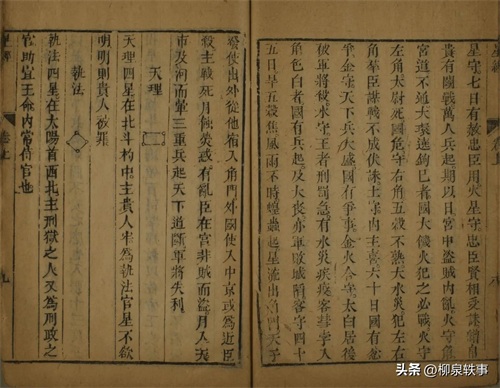 星守七日有赦忠臣用火星守忠臣相受誅
貴有國戰萬人兵起期以日宮中盜賊內亂火守
宮道不通大環進鉤巳者國大饑火犯之必戰火守
左角大尉死國危守右角五穀不熟大水災犯左右
角羣臣謀不成伏誅土守內主喜六十日期火守兩
角爭金守天下兵大盛國有爭事金火合守太白居後
破軍將被水守王者刑罰急有水災疾疫客彗字入
角色白者國有兵起及大喪亦軍敗城陷客守四十
五日旱五穀焦風雨不時蝗蟲起星流出角門天子
發使出外從他布入角門外國使入中京或為近臣
殺主戰死月蝕熒惑有亂臣在宮非賊而盜月入天
市及河而暈三重兵起天下道斷軍將失利
天理
天理四星在北斗杓中主貴人牢為執法官星不欲
明明則貴人欲罪
執法
執法四星在太陽首西北主刑獄之人又為刑政之
官助宣王命內官侍官也
卷七
九
头条 @柳泉轶事